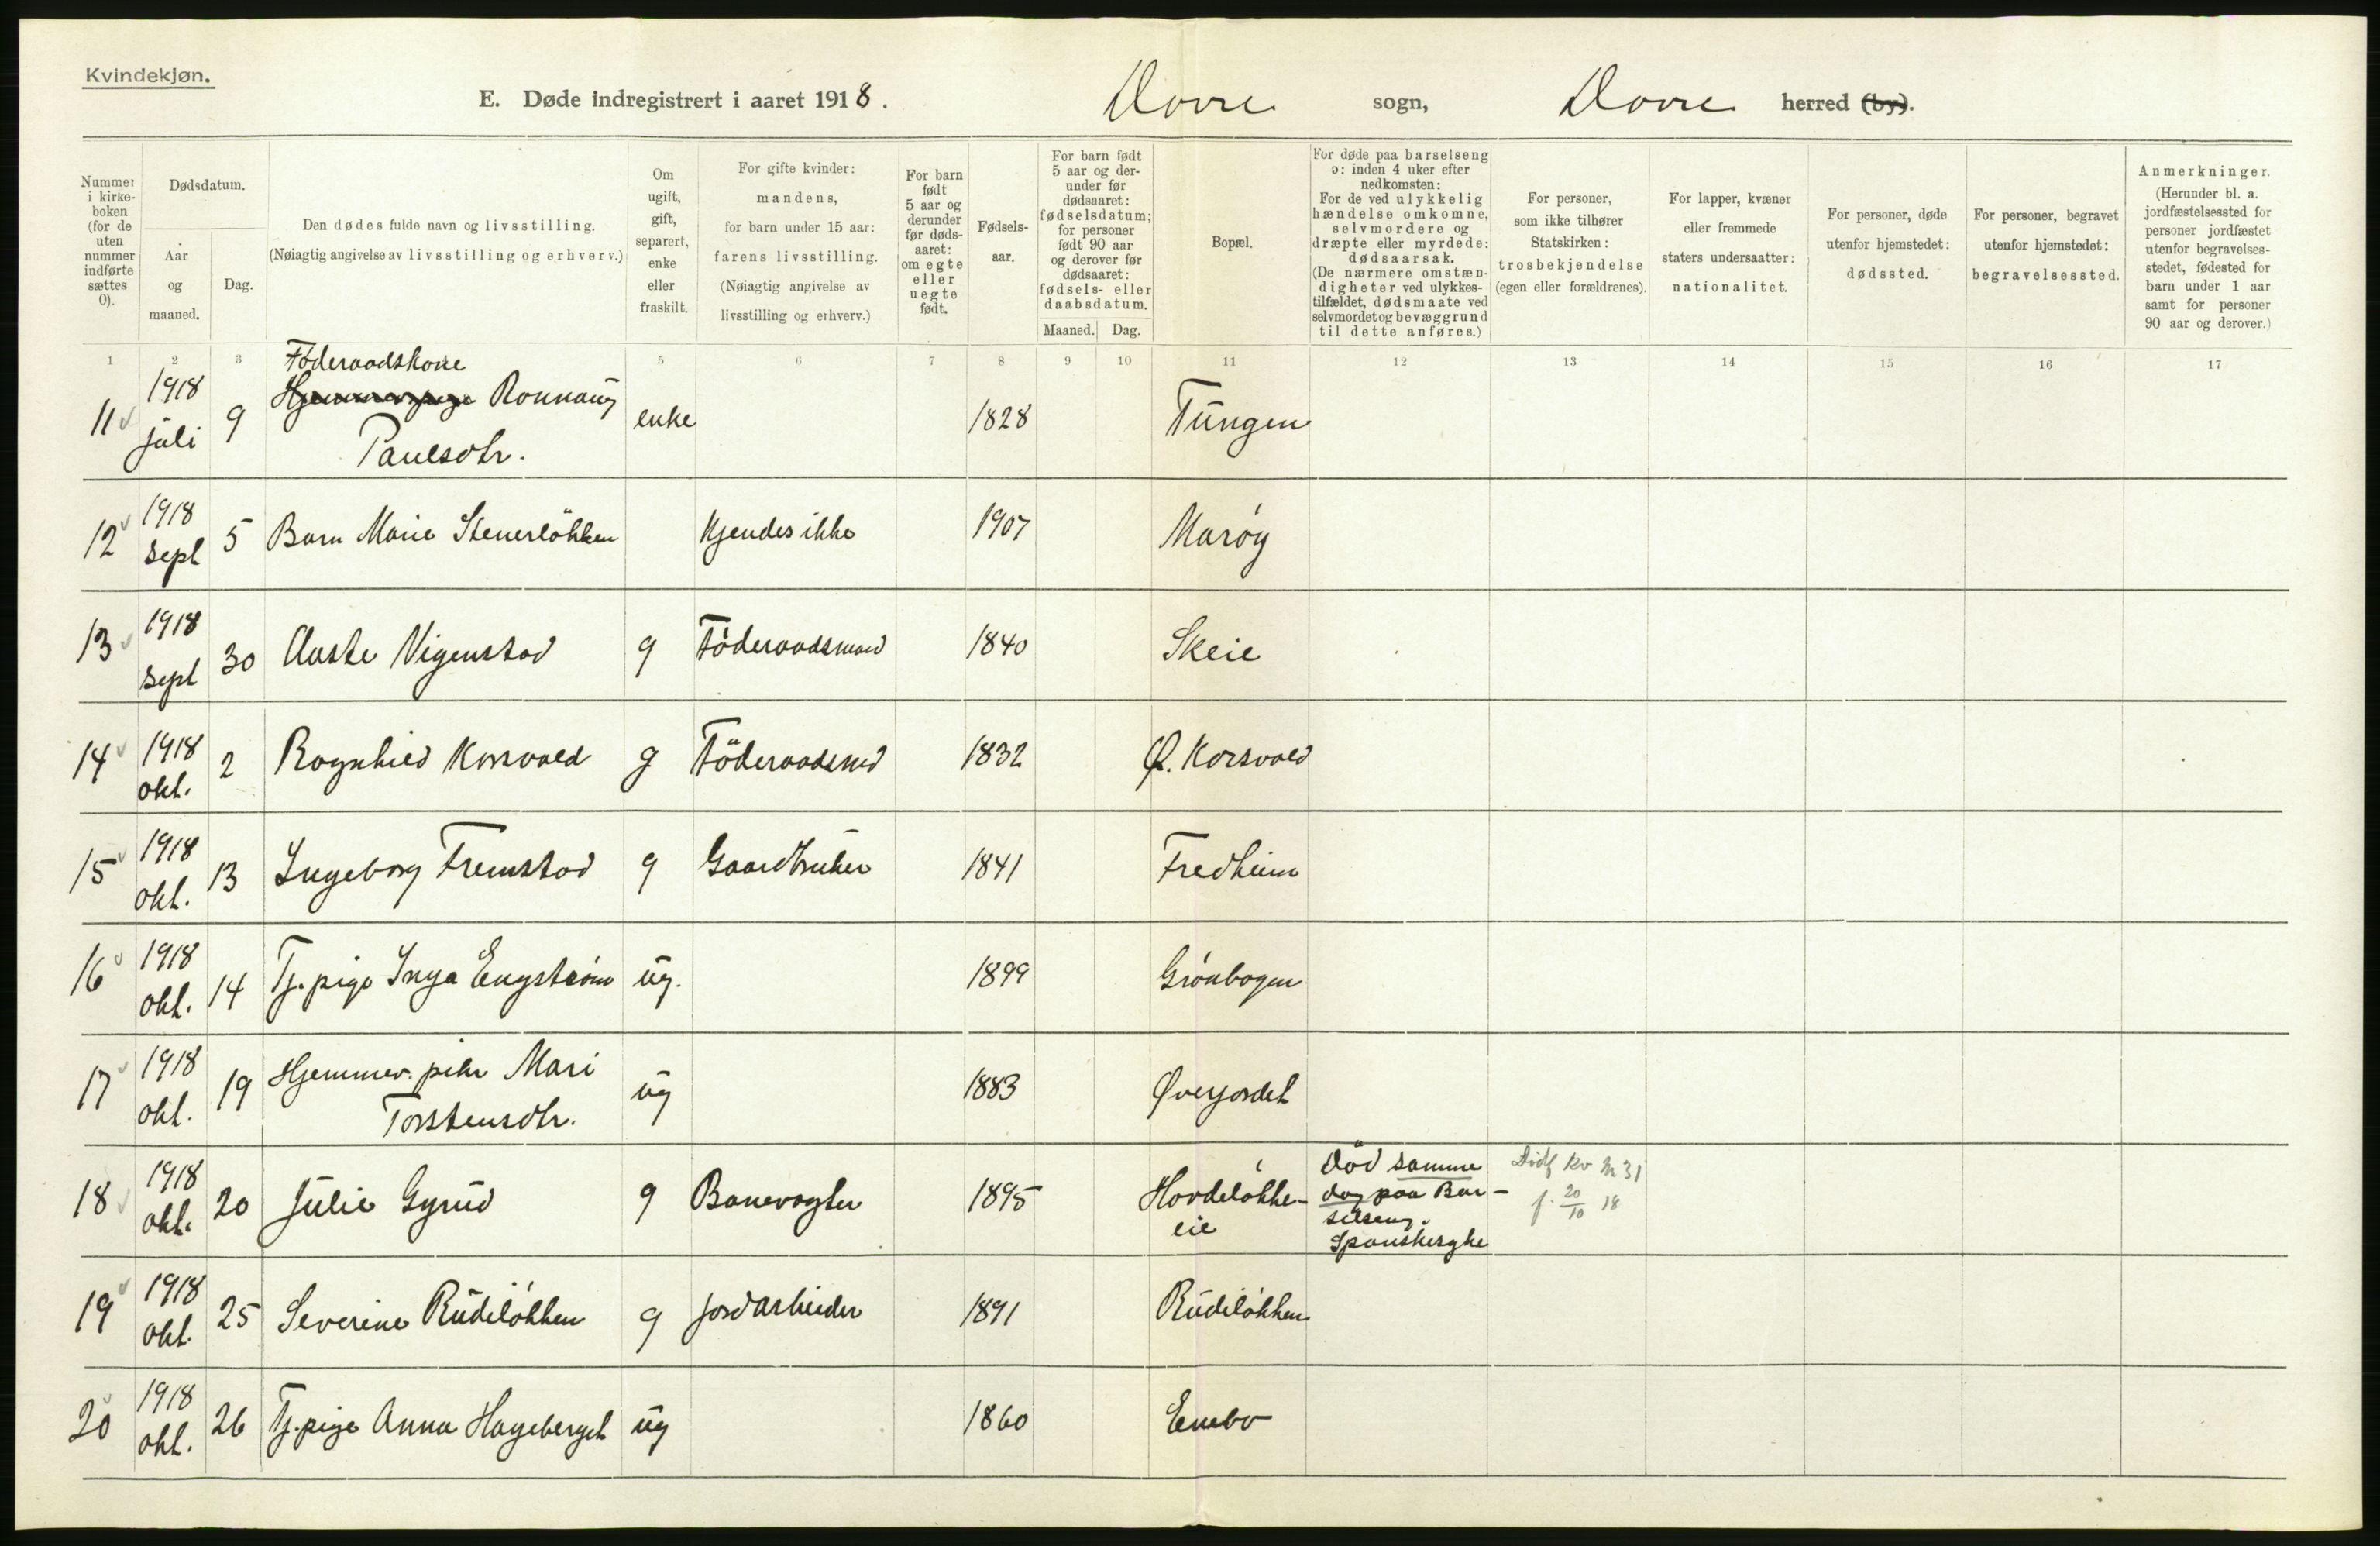 Kvindekjøn.
E. Døde indregistrert i aaret 1918. Dovre sogn, Dovre herred (by).
Nummer i kirkeboken (for de uten nummer indførte sættes 0).
Dødsdatum.
Aar og maaned.
Dag.
Den dødes fulde navn og livsstilling.
(Nøiagtig angivelse av livsstilling og erhverv.)
Om ugift, gift, separert, enke eller fraskilt.
For gifte kvinder:
mandens,
for barn under 15 aar:
farens livsstilling.
(Nøiagtig angivelse av
livsstilling og erhverv.)
For barn født 5 aar og derunder før dødsaaret: om egte eller uegte født.
Fødselsaar.
For barn født
5 aar og der-
under før
dødsaaret:
fødselsdatum;
for personer
født 90 aar
og derover før
dødsaaret:
fødsels- eller
daabsdatum.
Maaned. Dag.
Bopæl.
For døde paa barselseng
ɔ: inden 4 uker efter
nedkomsten:
For de ved ulykkelig
hændelse omkomne,
selvmordere og
dræpte eller myrdede:
dødsaarsak.
(De nærmere omstæn-
digheter ved ulykkes-
tilfældet, dødsmaate ved
selvmordet og bevæggrund
til dette anføres.)
For personer,
som ikke tilhører
Statskirken:
trosbekjendelse
(egen eller forældrenes).
For lapper, kvæner
eller fremmede
staters undersaatter:
nationalitet.
For personer, døde
utenfor hjemstedet:
dødssted.
For personer, begravet
utenfor hjemstedet:
begravelsessted.
Anmerkninger.
(Herunder bl. a.
jordfæstelsessted for
personer jordfæstet
utenfor begravelses-
stedet, fødested for
barn under 1 aar
samt for personer
90 aar og derover.)
1 2 3 5 6 7 8 9 10 11 12 13 14 15 16 17
Föderaadskone
11 1918 juli 9 Hjemmevpige Ronnaug Paulsdtr. enke 1828 Tungen
12 1918 Sept 5 Barn Marie Stenerløkken Kjendes ikke 1907
13 1918 Sept 30 Aaste Vigenstad g Föderaadsmand 1840 Skeie
14 1918 okt. 2 Ragnhild Korsvold g Föderaadsmd 1832 Ø. Korsvold
15 1918 okt. 13 Ingeborg Fremstad g Gaardbruker 1841 Fredheim
16 1918 okt. 14 Tj. pige Inga Engström ug. 1899 Grönbogen
17 1918 okt. 19 Hjemmev. pike Mari Torstensdtr. ug 1883 Øverjordet
18 1918 okt. 20 Julie Gyrud g Banevogter 1895 Hovdeløkke-
eie
Död samme
dag paa Bar-
selseng.
Spanskesyke
Kv 31
f. 20/10 18
19 1918 okt. 25 Severine Rudiløkken g jordarbeider 1891 Rudiløkken
20 1918 okt. 26 Tj. pige Anna Hageberget ug 1860 Enebo